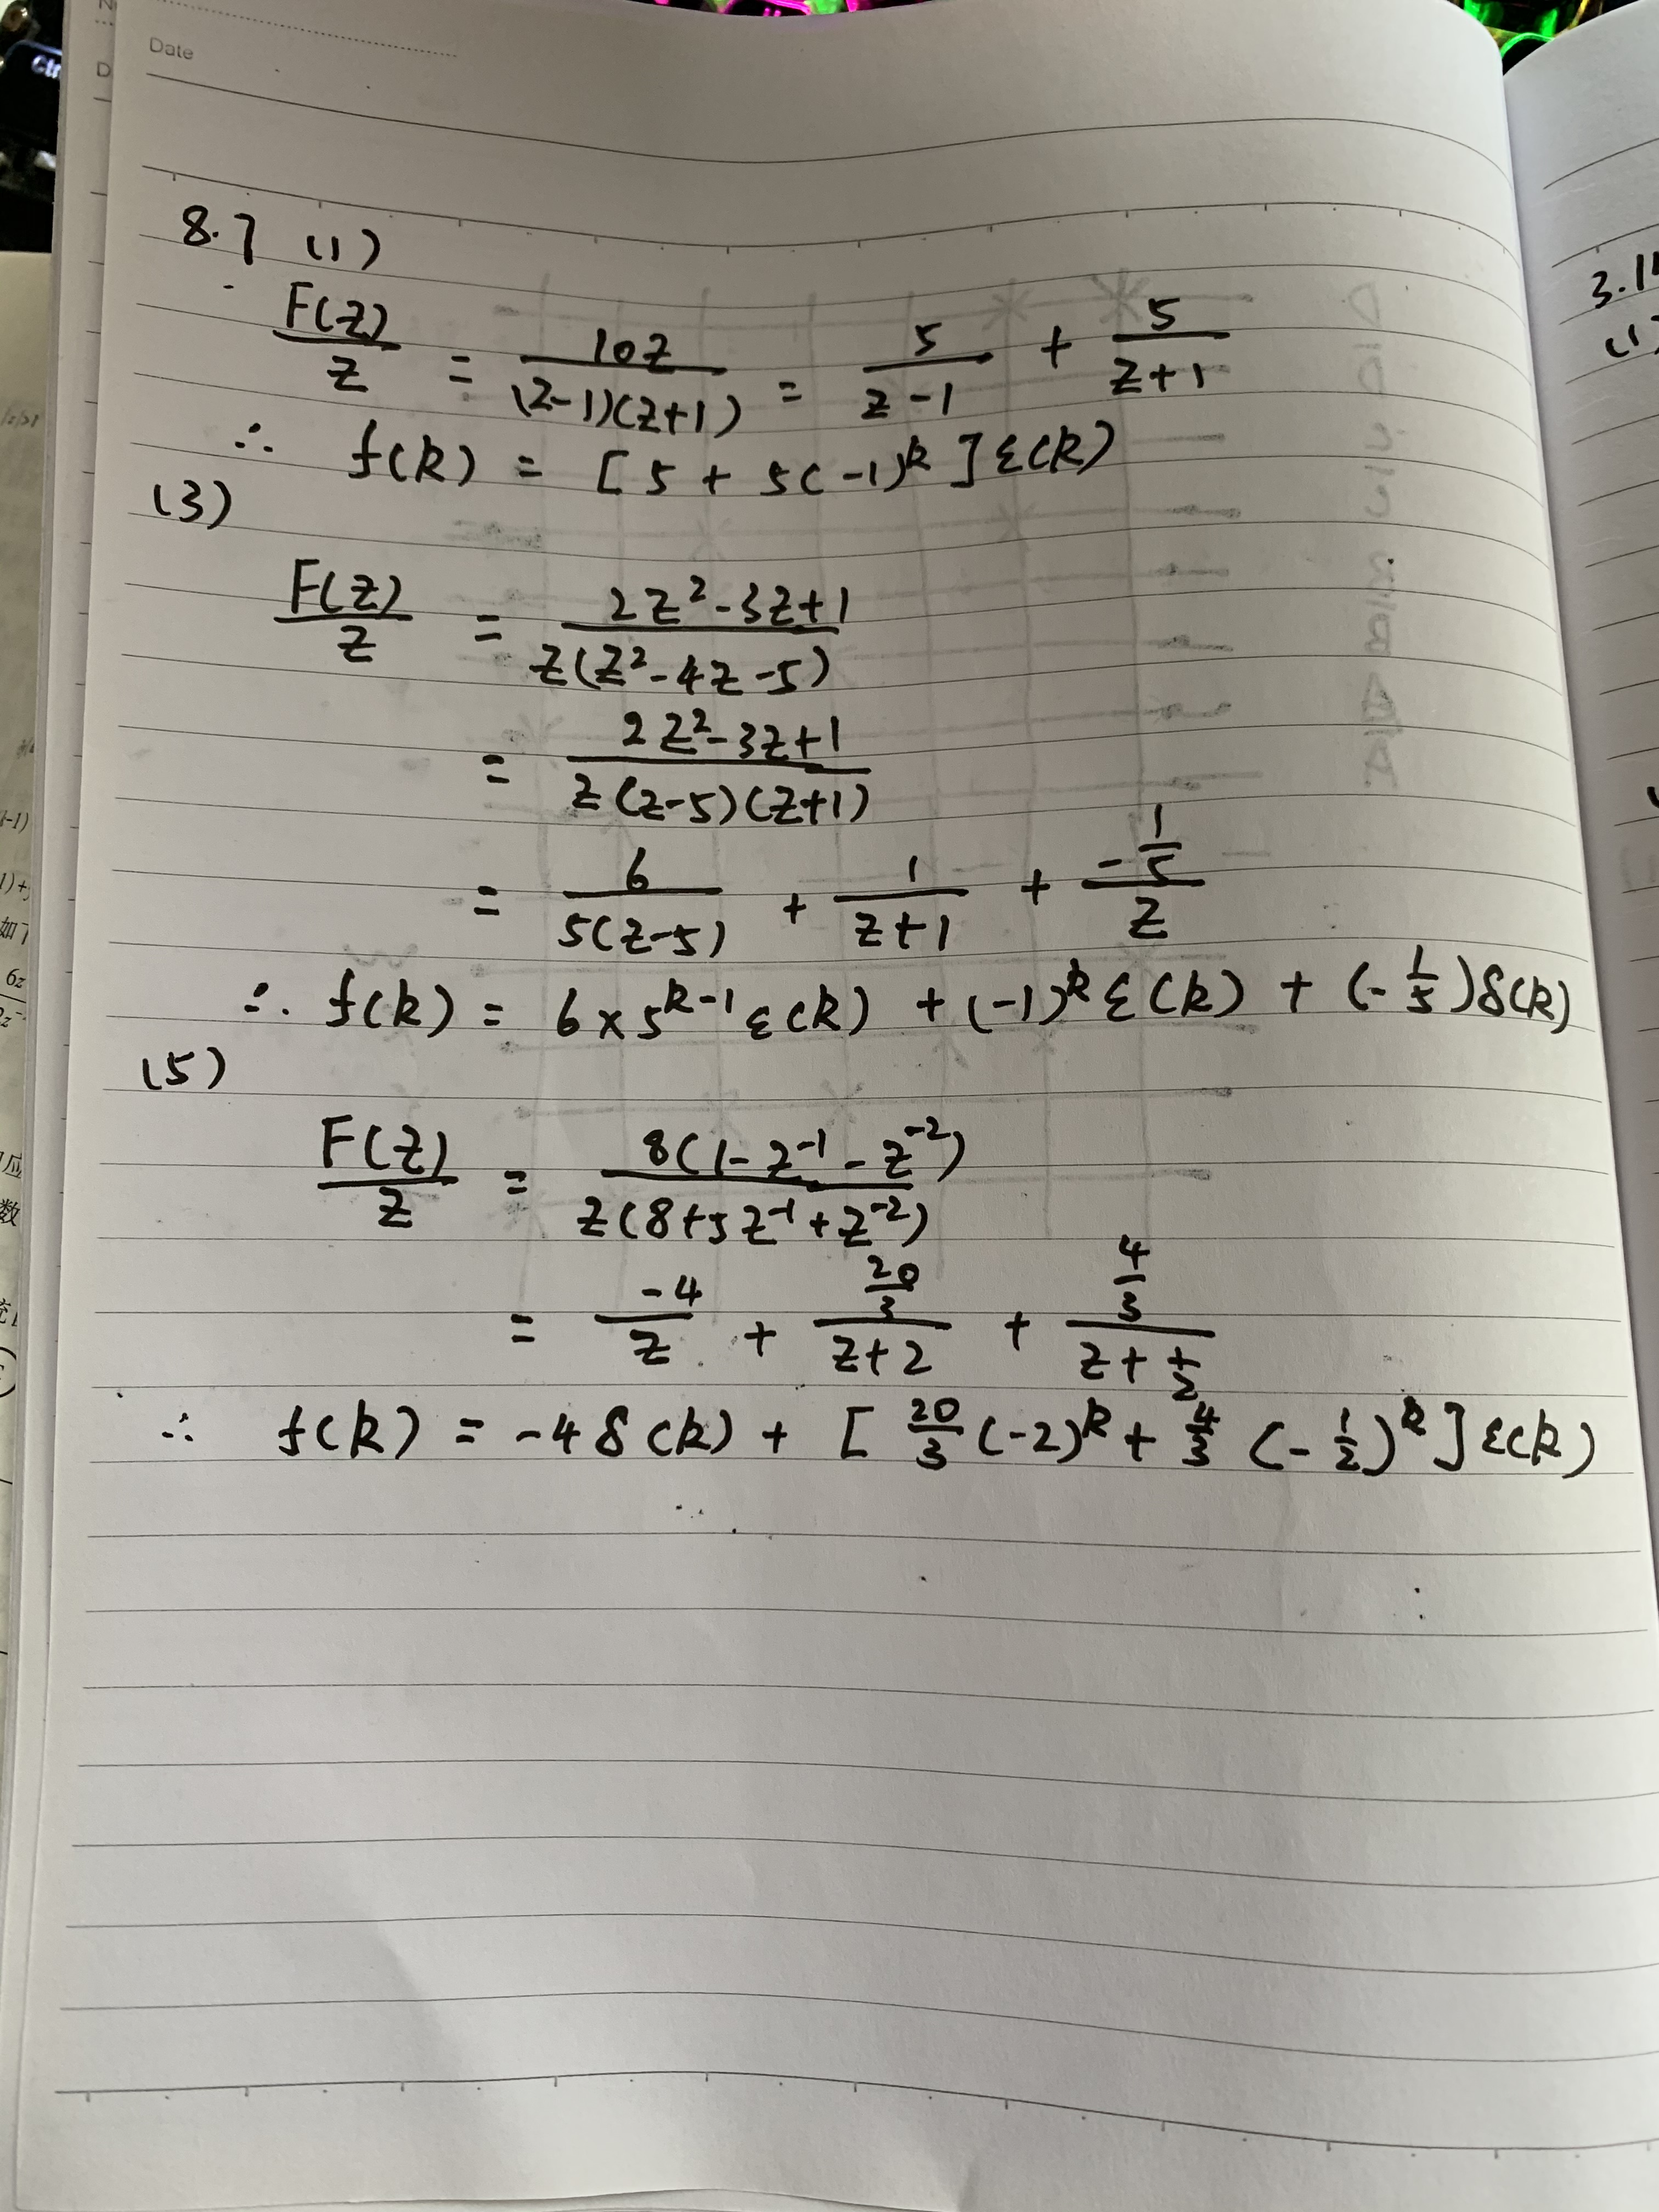 Date
8.7 (1)
F(z)/z = 10z/((z-1)(z+1)) = 5/(z-1) + 5/(z+1)
∴ f(k) = [5 + 5(-1)^k]ε(k)
(3)
F(z)/z = (2z²-3z+1)/(z(z²-4z-5))
= (2z²-3z+1)/(z(z-5)(z+1))
= 6/(5(z-5)) + 1/(z+1) + (-1/5)/z
∴ f(k) = 6×5^(k-1) ε(k) + (-1)^k ε(k) + (-1/5)δ(k)
(5)
F(z)/z = 8(1-z^-1-z^-2)/(z(8+5z^-1+z^-2))
= -4/z + (20/3)/(z+2) + (4/3)/(z+1/2)
∴ f(k) = -4δ(k) + [20/3(-2)^k + 4/3(-1/2)^k]ε(k)